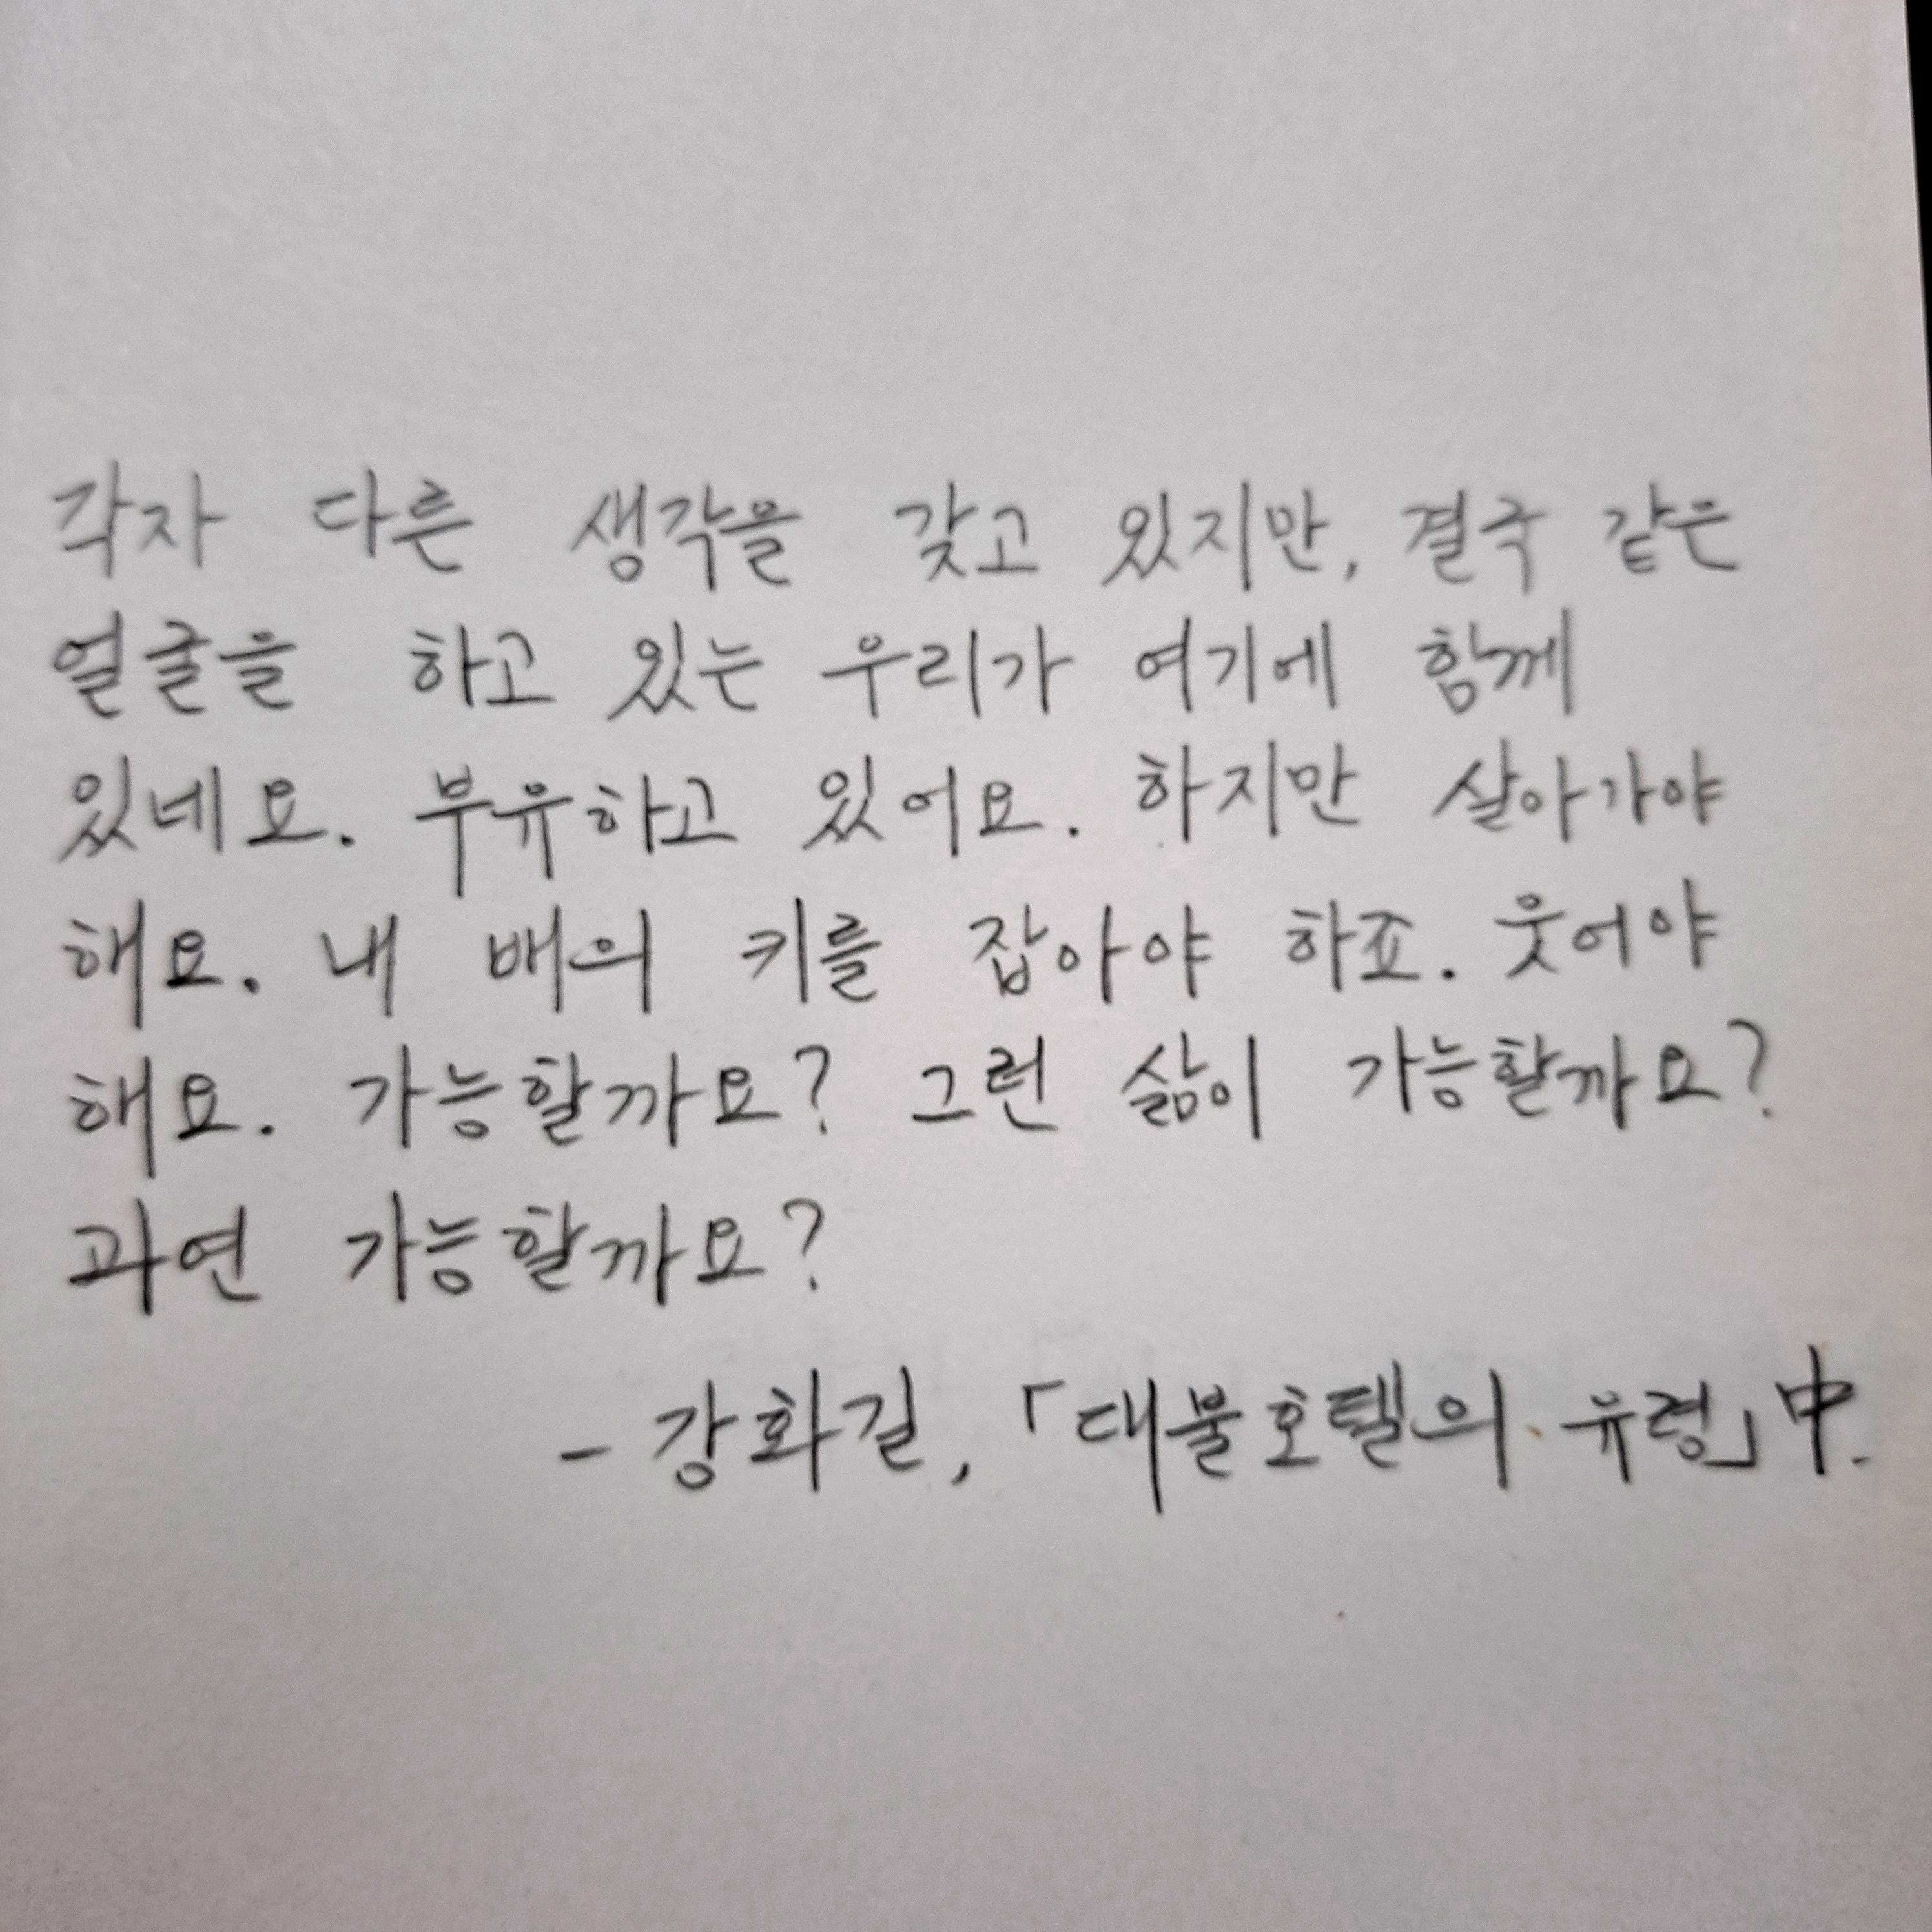 각자 다른 생각을 갖고 있지만, 결국 같은
얼굴을 하고 있는 우리가 여기에 함께
있네요. 부유하고 있어요. 하지만 살아가야
해요. 내 배의 키를 잡아야 하죠. 웃어야
해요. 가능할까요? 그런 삶이 가능할까요?
과연 가능할까요?
- 강화길, 「대불호텔의 유령」 中.